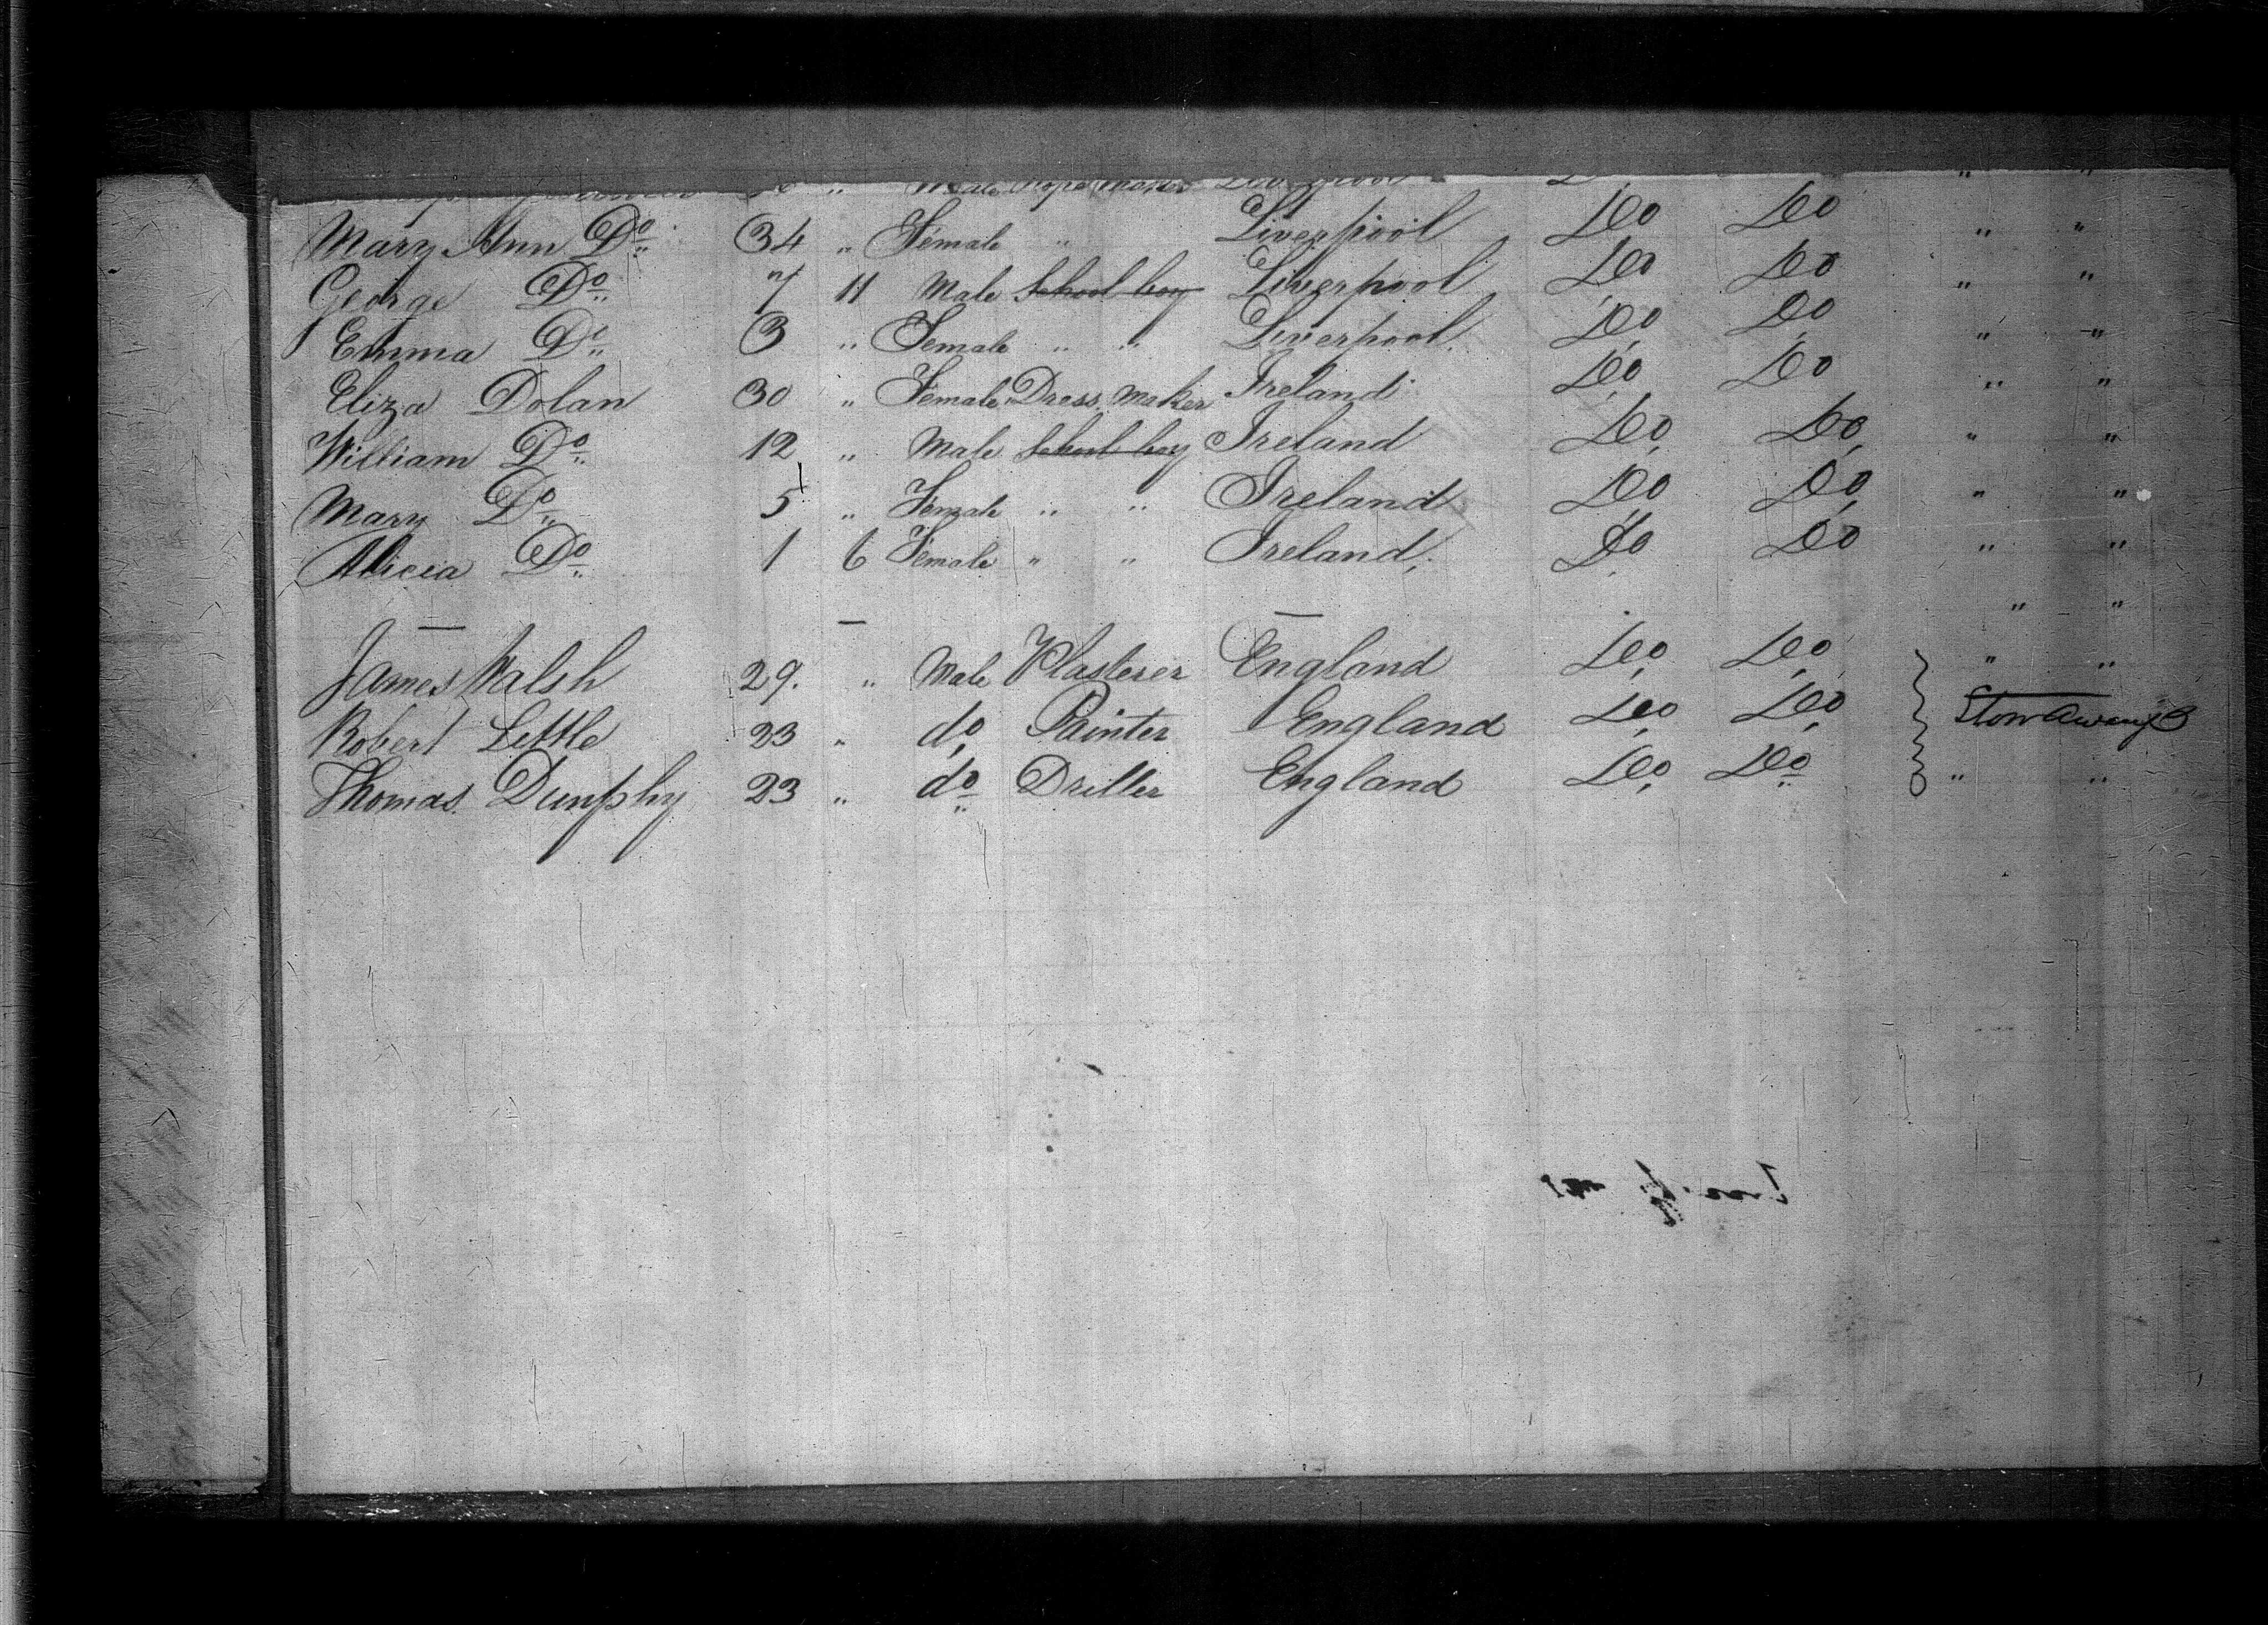 Male Rope Maker Liverpool " "
Mary Ann Do 34 " Female " Liverpool Do Do " "
George Do 7 11 Male School boy Liverpool Do Do " "
Emma Do 3 " Female " " Liverpool Do Do " "
Eliza Dolan 30 " Female Dress Maker Ireland Do Do " "
William Do 12 " Male School boy Ireland Do Do " "
Mary Do 5 " Female " " Ireland Do Do " "
Alicia Do 1 6 Female " " Ireland Do Do " "
" "
James Walsh 29. " Male Plasterer England Do Do " "
Robert Little 23 " do Painter England Do Do Stow Aways
Thomas Dunphy 23 " do Driller England Do Do " "